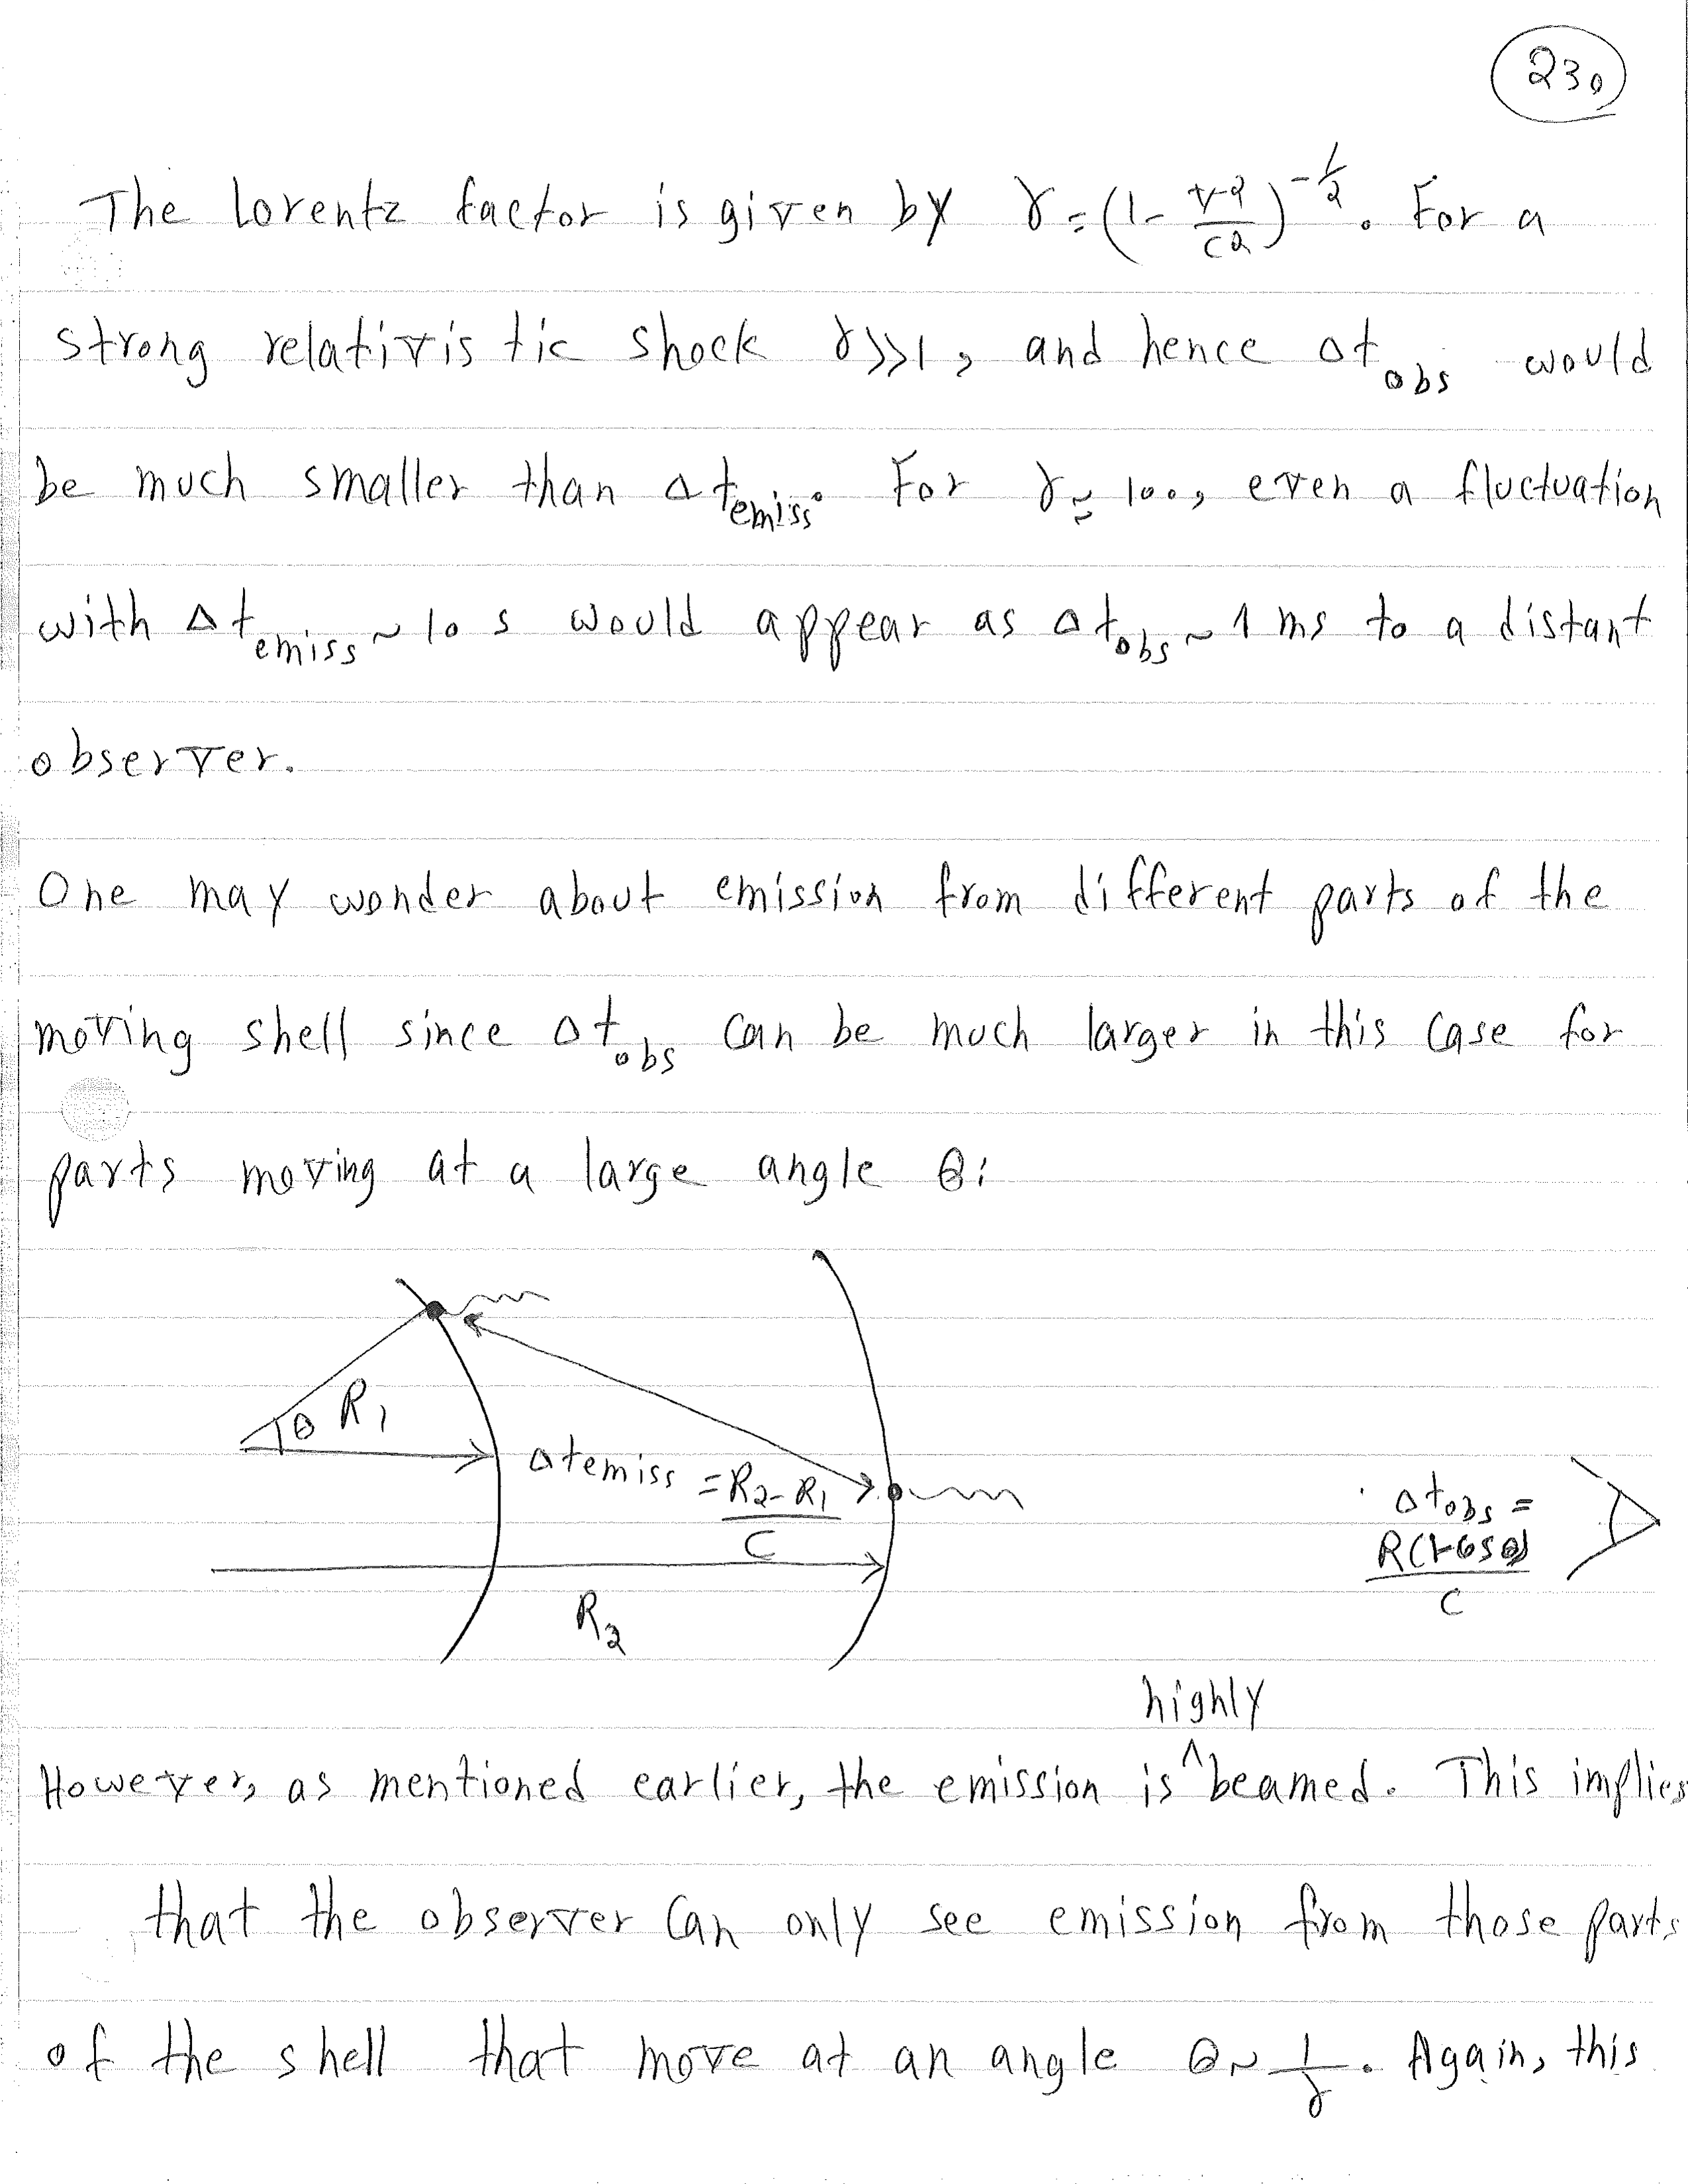 230
The Lorentz factor is given by γ=(1-v²/c²)^-1/2. For a
strong relativistic shock γ>>1, and hence Δt_obs would
be much smaller than Δt_emiss. For γ≃100, even a fluctuation
with Δt_emiss~10 s would appear as Δt_obs~1 ms to a distant
observer.
One may wonder about emission from different parts of the
moving shell since Δt_obs can be much larger in this case for
parts moving at a large angle θ:
θ R₁
Δtemiss = R₂-R₁/C
Δt_obs = R(1-cosθ)/C
R₂
highly
However, as mentioned earlier, the emission is ^ beamed. This implies
that the observer can only see emission from those parts
of the shell that move at an angle θ~1/γ. Again, this